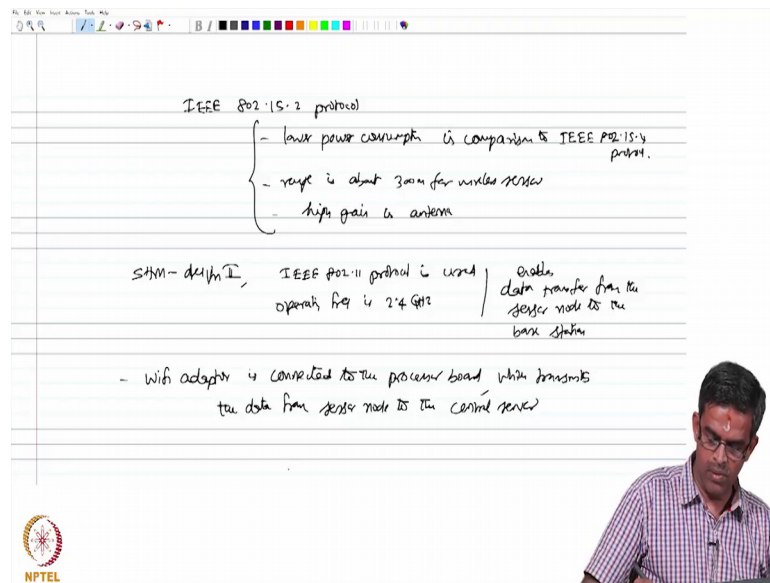 File Edit View Insert Actions Tools Help
B I
IEEE 802.15.2 protocol
- lower power consumption is comparison to IEEE 802.15.4
protocol.
- range is about 300m for wireless sensor
- high gain in antenna
SHM - design II, IEEE 802.11 protocol is used
operating freq is 2.4 GHz
enables
data transfer from the
sensor node to the
base station
- Wifi adaptor is connected to the processor board, which transmits
the data from sensor node to the central server
NPTEL